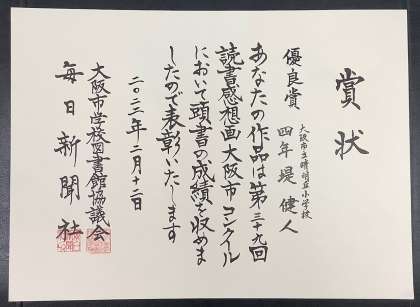 賞状
優良賞
大阪市立晴明丘小学校
四年 堤 健人
あなたの作品は第三十九回
読書感想画大阪市コンクール
において頭書の成績を収めま
したので表彰いたします
二〇二二年二月十二日
大阪市学校図書館協議会
毎日新聞社